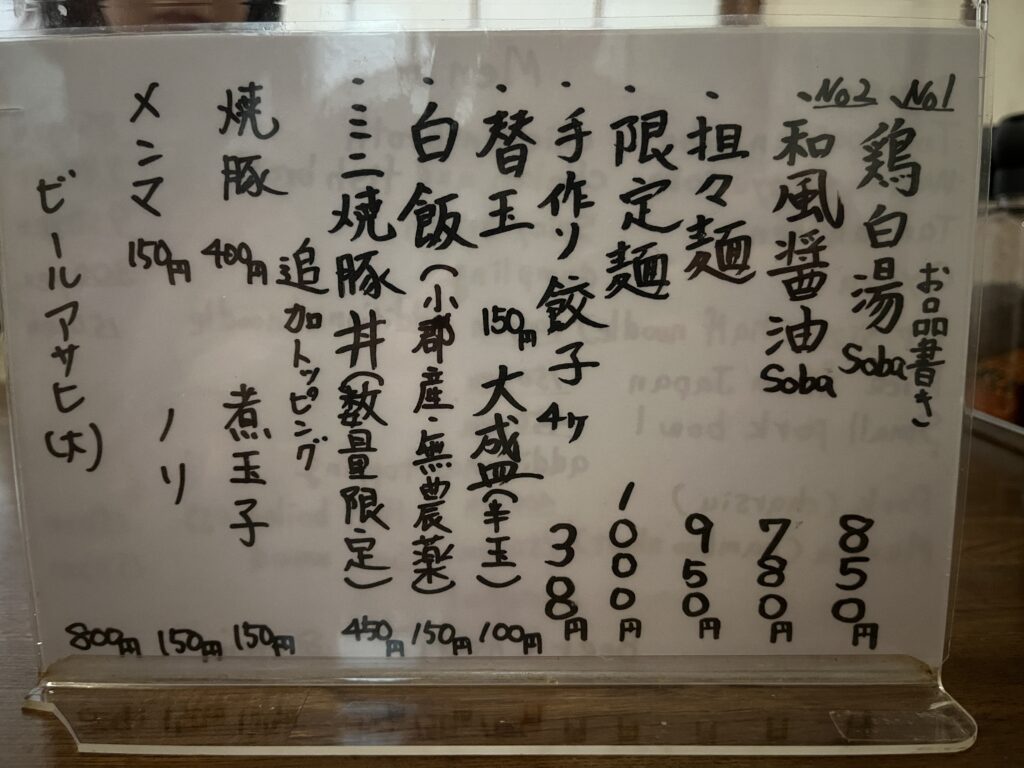 お品書き
・No1 鶏白湯Soba 850円
・No2 和風醤油Soba 780円
・担々麺 950円
・限定麺 1000円
・手作り餃子4ケ 38円
・替玉 150円 大盛(半玉) 100円
・白飯(小郡産・無農薬) 150円
・ミニ焼豚丼(数量限定) 450円
追加トッピング
焼豚 400円 煮玉子 150円
メンマ 150円 ノリ 150円
ビールアサヒ(大) 800円